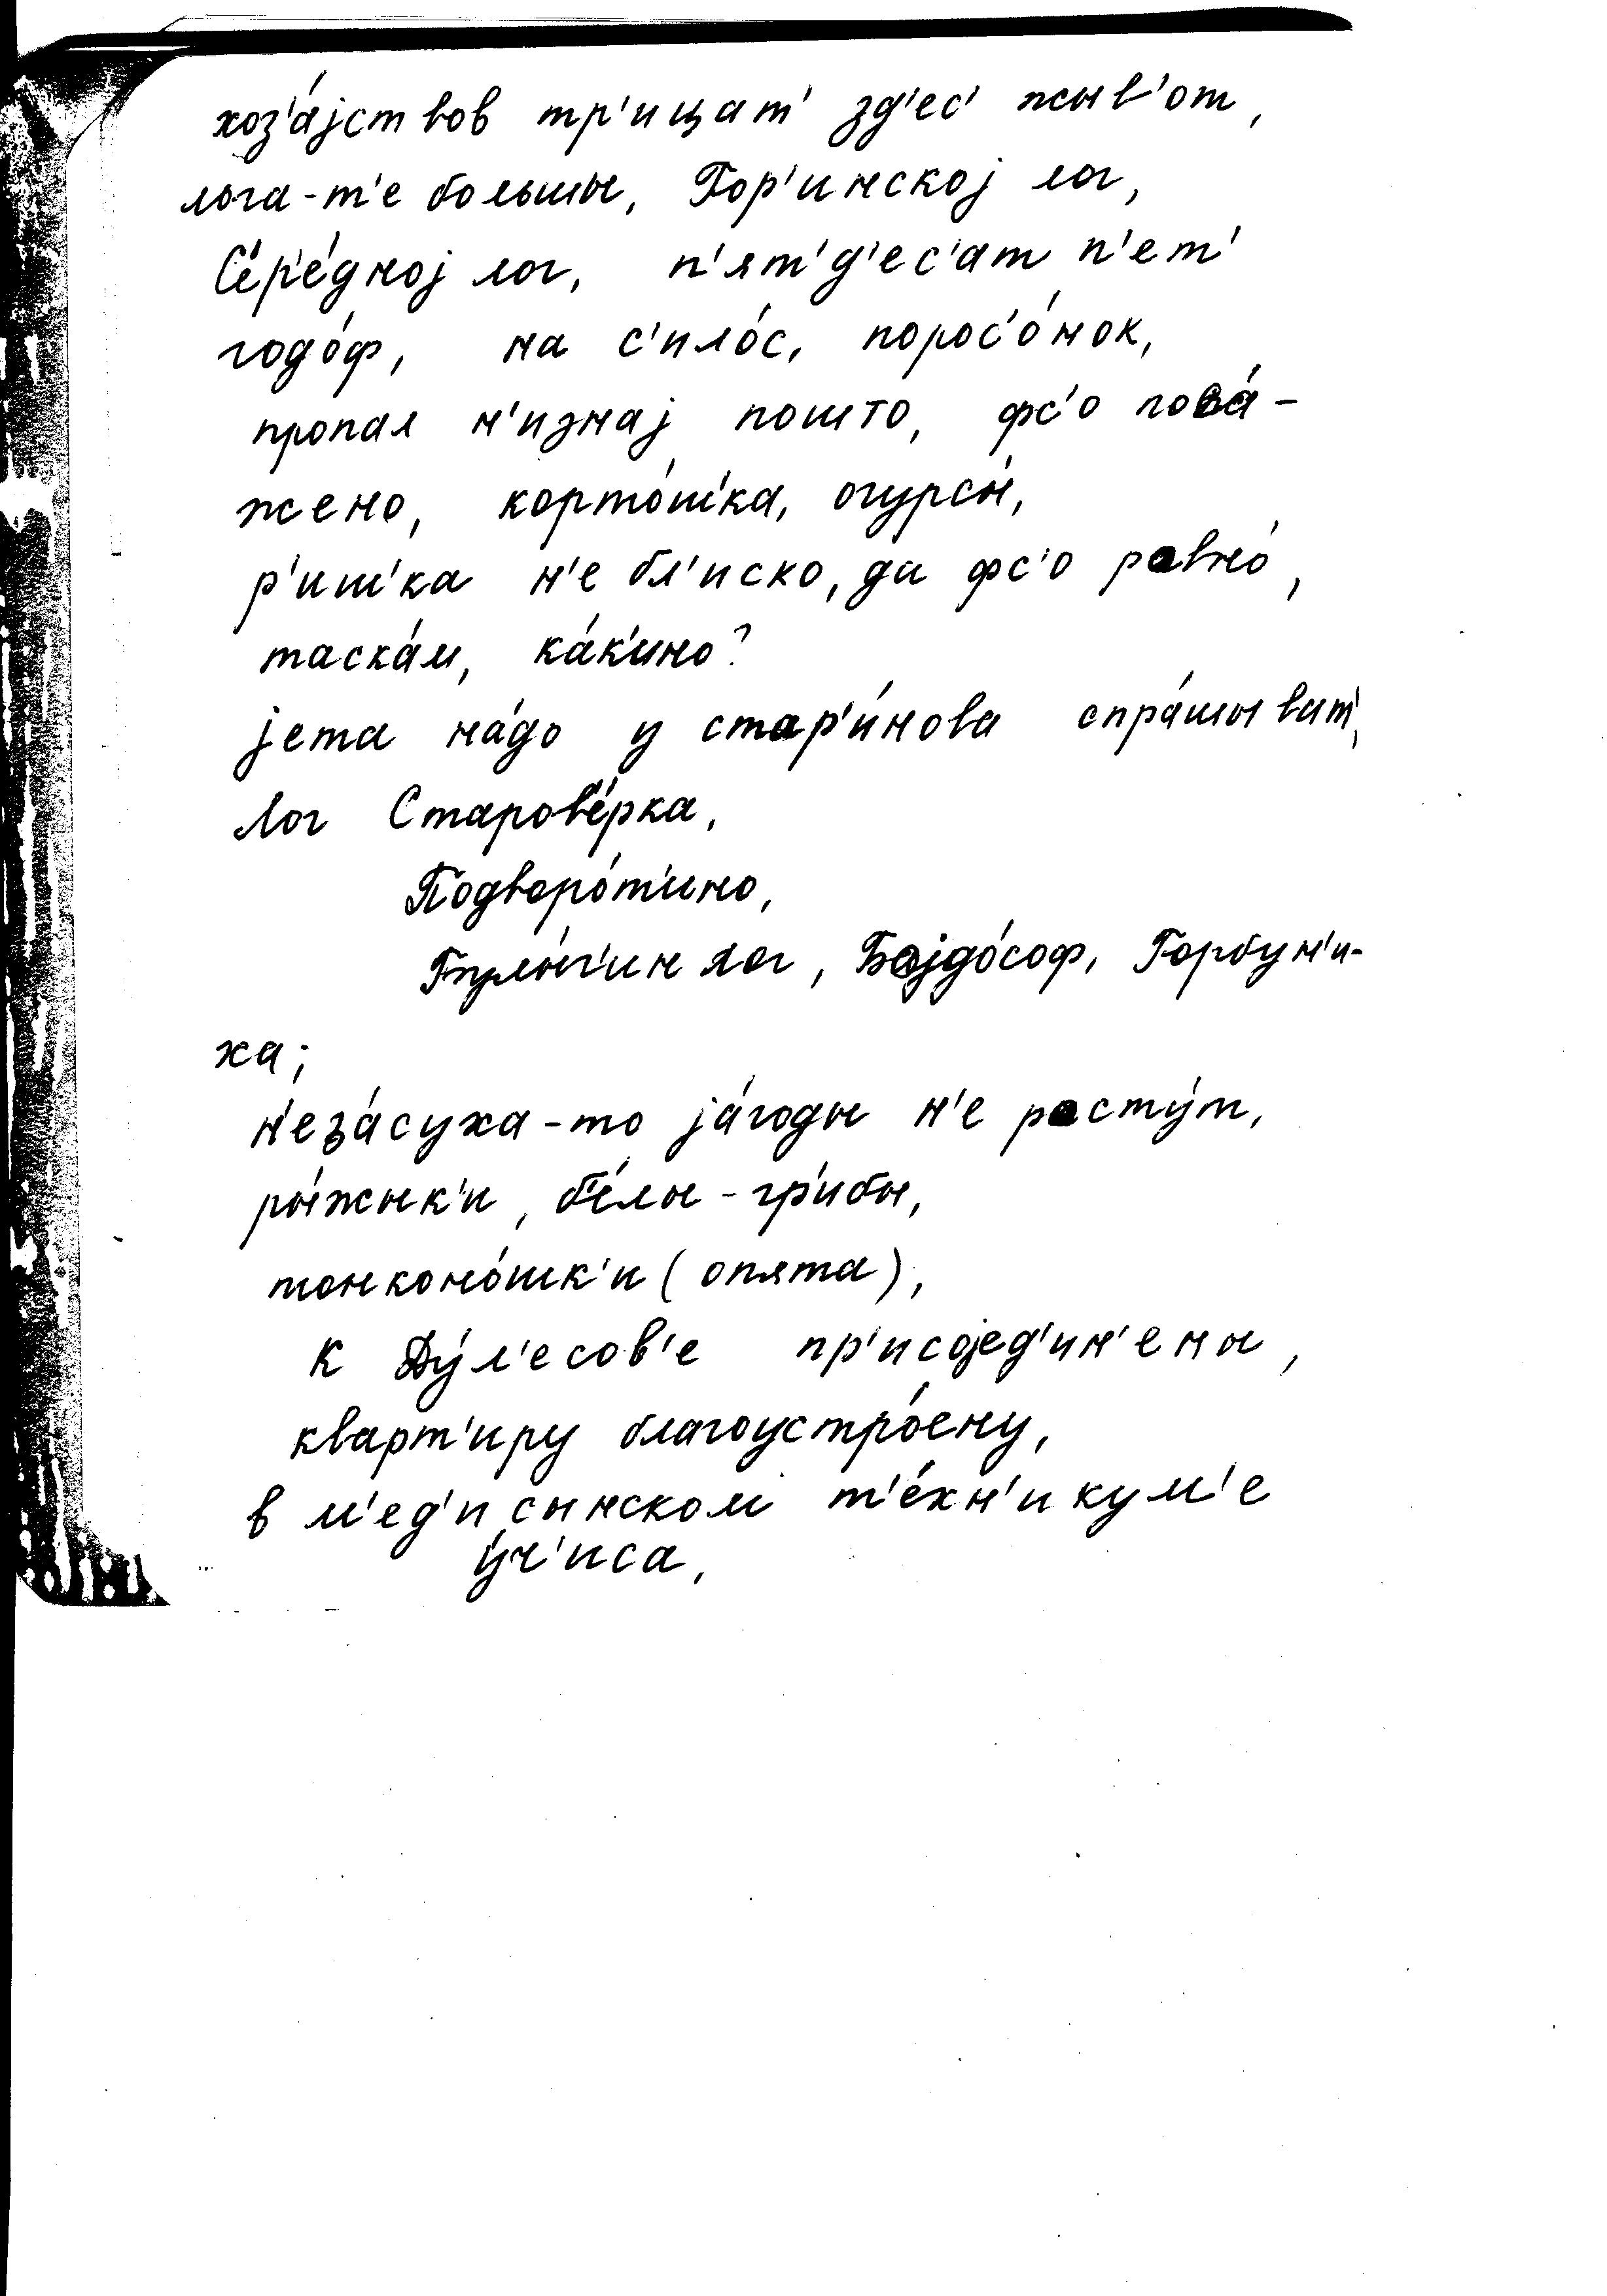 хоз'а́јствов тр'ицат' зд'ес' жыв'от,
лога-т'е большы, Гор'инској лог,
С'ер'е́дној лог, п'ят'д'ес'ат п'ет'
годо́ф, на с'ило́с, порос'о́нок,
пропал н'изнај пошто, фс'о поса́-
жено, карто́шка, огурсы́,
р'ишка н'е бл'иско, да фс'о равно́,
таска́м, ка́к'ино?
јета на́до у стар'и́нова спра́шыват',
Лог Старов'е́рка,
Подворо́т'ино,
лог, Бајдо́соф, Горбун'и-
ха;
н'еза́суха-то ја́годы н'е расту́т,
ры́жык'и, б'е́лы-гр'ибы,
тонконо́шк'и (опята),
к Ду́л'есов'е пр'исојед'ин'ены,
кварт'иру благоустро́ену,
в м'ед'исынском т'е́хн'икум'е
у́ч'иса,